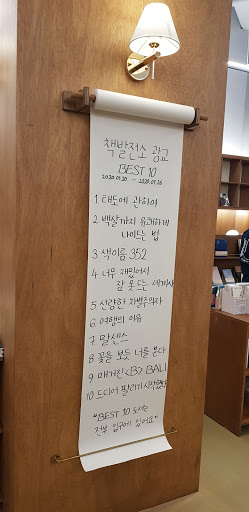 책발전소 광교
BEST 10
2020.01.20 - 2020.01.26
1 태도에 관하여
2 백살까지 유쾌하게
나이드는 법
3 색이름 352
4 너무 재밌어서
잠 못 드는 세계사
5 선량한 차별주의자
6 여행의 이유
7 말센스
8 꽃을 보듯 너를 본다
9 매거진 <B> BALI
10 드디어 팔리기 시작했다
"BEST 10 도서는
전부 입구에 있어요"